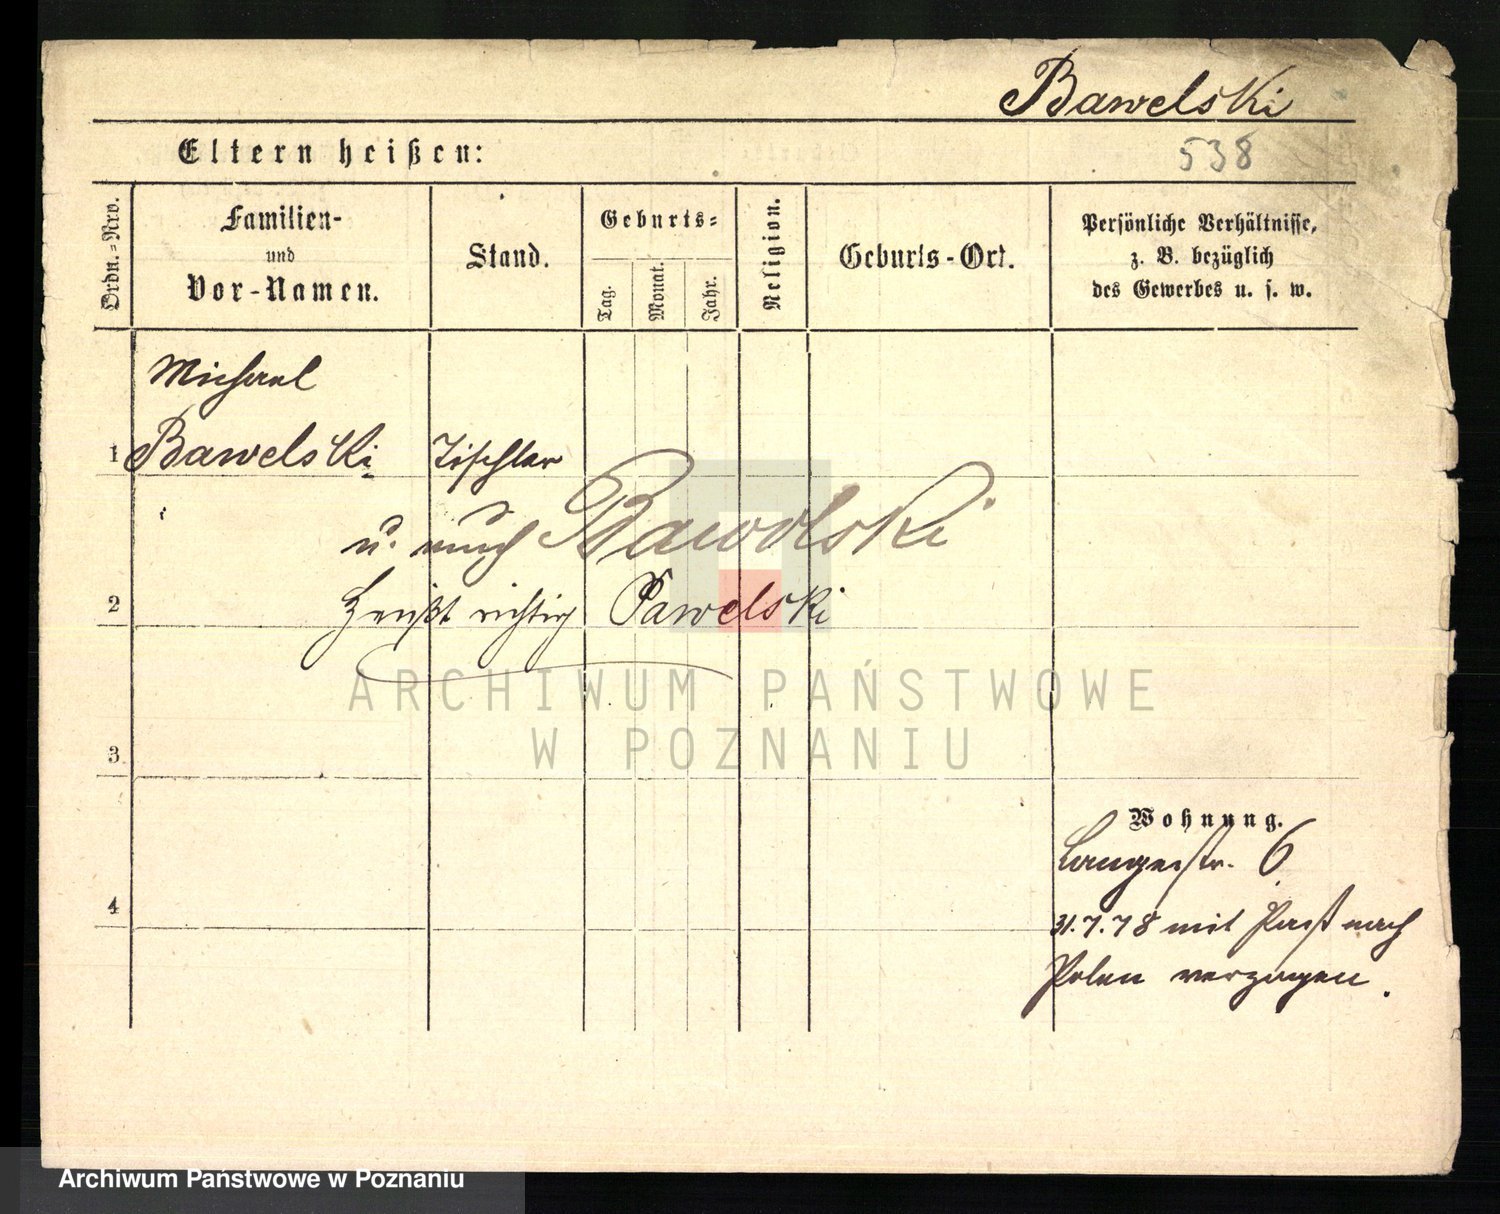 Bawelski
Eltern heißen:
538
Ordn.-Nro.
Familien-
und
Vor-Namen.
Stand.
Geburts-
Tag.
Monat.
Jahr.
Religion.
Geburts-Ort.
Persönliche Verhältnisse,
z. B. bezüglich
des Gewerbes u. s. w.
Michael
1 Bawelski Tischler
u. auch Bawolski
2
heißt richtig Pawelski
ARCHIWUM PAŃSTWOWE
W POZNANIU
3
Wohnung.
Langestr. 6
4
31.7.78 mit Paß nach
Polen verzogen.
Archiwum Państwowe w Poznaniu